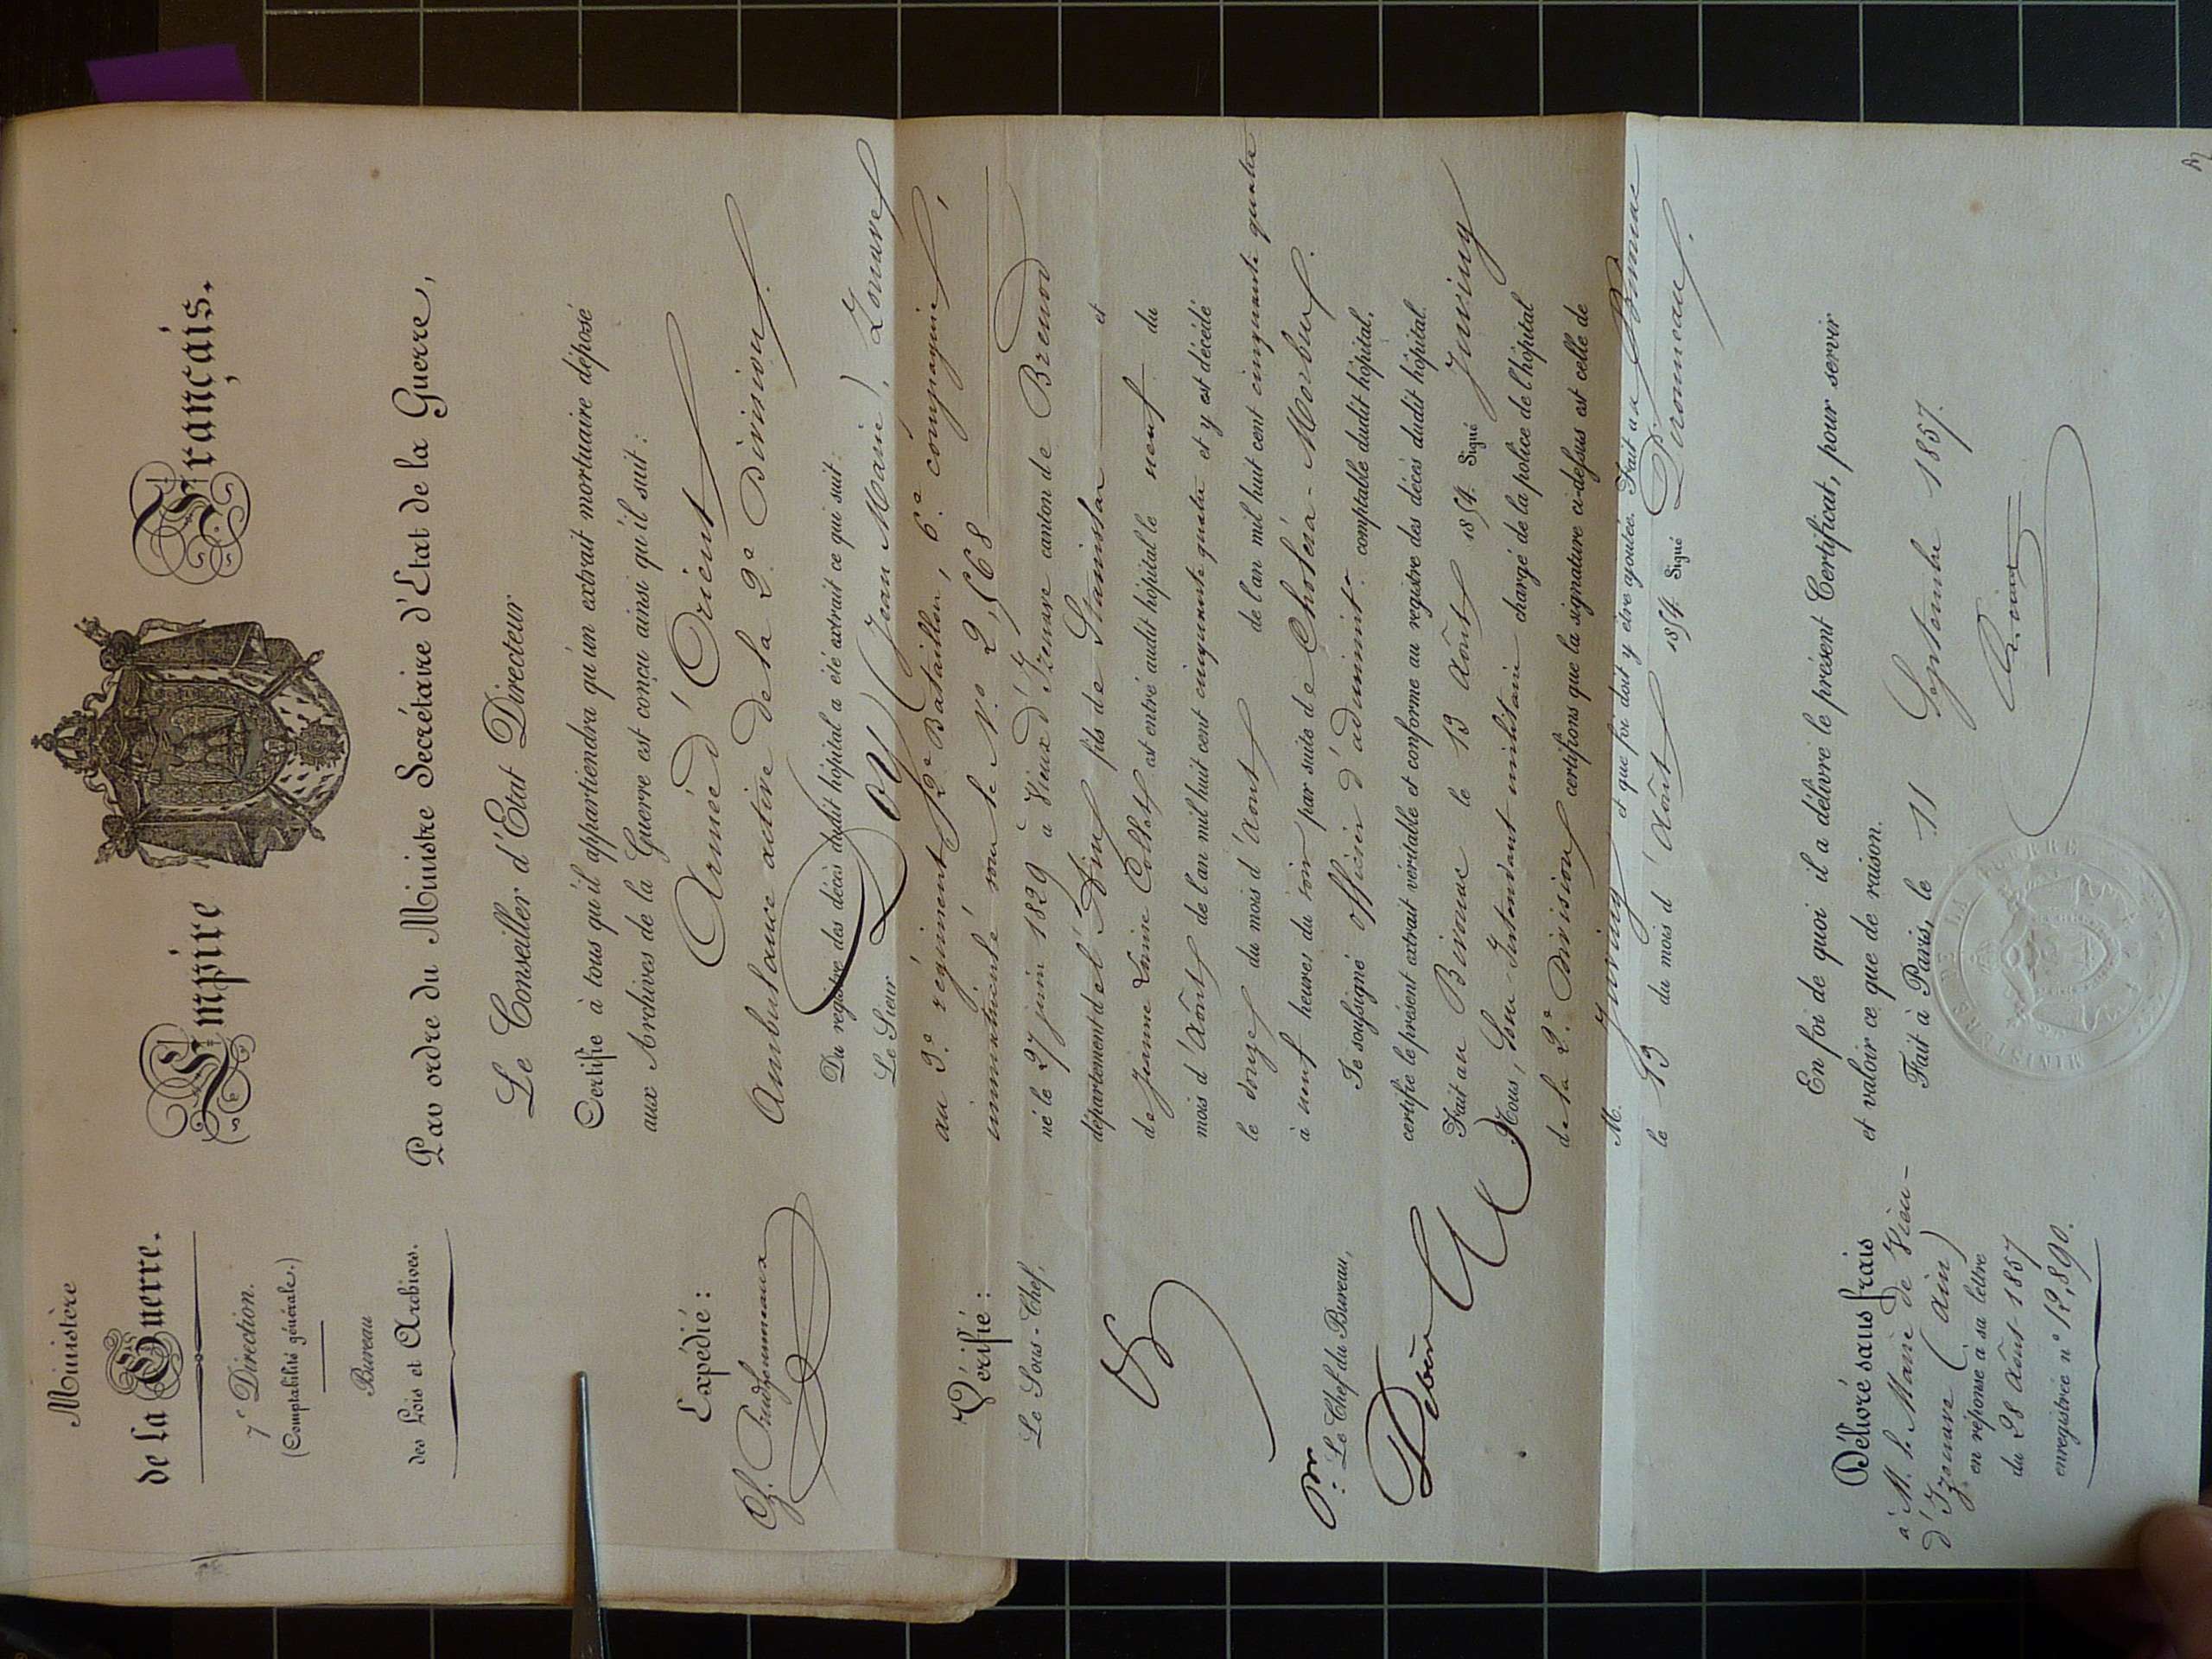 Ministère
de la Guerre.
7e Direction.
(Comptabilité générale.)
Bureau
des Lois et Archives.
Empire Français.
Par ordre du Ministre Secrétaire d'État de la Guerre,
Le Conseiller d'Etat Directeur
Certifie à tous qu'il appartiendra qu'un extrait mortuaire déposé
aux Archives de la Guerre est conçu ainsi qu'il suit :
Armée d'Orient
Ambulance active de la 2e Division.
Du registre des décès dudit hôpital a été extrait ce qui suit :
Le Sieur (Jean Marie), Zouave
au 3e régiment, 2e Bataillon, 6e compagnie,
immatriculé sous le No 2,568
né le 27 juin 1829 à Vieux d'Izenave canton de Brenod
département de l'Ain fils de Stanislas et
de Jeanne Louise Collet est entré audit hôpital le neuf du
mois d'Août de l'an mil huit cent cinquante quatre et y est décédé
le douze du mois d'Août de l'an mil huit cent cinquante quatre
à neuf heures du soir par suite de Choléra-Morbus.
Je soussigné officier d'administ.on comptable dudit hôpital,
certifie le présent extrait véritable et conforme au registre des décès dudit hôpital.
Fait au Bivouac le 13 Août 1854. Signé Juving
Nous, Sous Intendant militaire chargé de la police de l'hôpital
de la 2e Division certifions que la signature ci-dessus est celle de
M. Juving et que foi doit y être ajoutée. Fait au Bivouac
le 13 du mois d'Août 1854. Signé
En foi de quoi il a délivré le présent Certificat, pour servir
et valoir ce que de raison.
Fait à Paris, le 11 Septembre 1857.
Expédié :
Vérifié :
Le Sous-Chef,
Pr: Le Chef du Bureau,
Délivré sans frais
à M. le Maire de Vieu-
d'Izenave (Ain)
en réponse à sa lettre
du 28 Août 1857
enregistrée no 12,890.
MINISTÈRE DE LA GUERRE